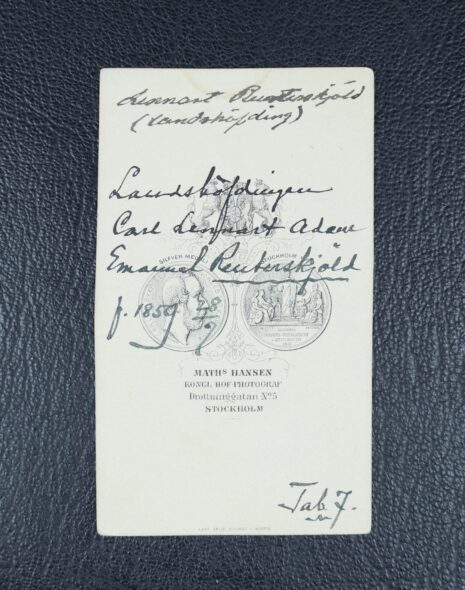 Lennart Reuterskjöld
(Landshöfding)
Landshöfdingen
Carl Lennart Adam
Emanuel Reuterskjöld
SILFVER MEDALJ
STOCKHOLM
f. 1859 28/9
MATHS HANSEN
KONGL HOF-PHOTOGRAF
Drottninggatan No 5
STOCKHOLM
Tab 7.